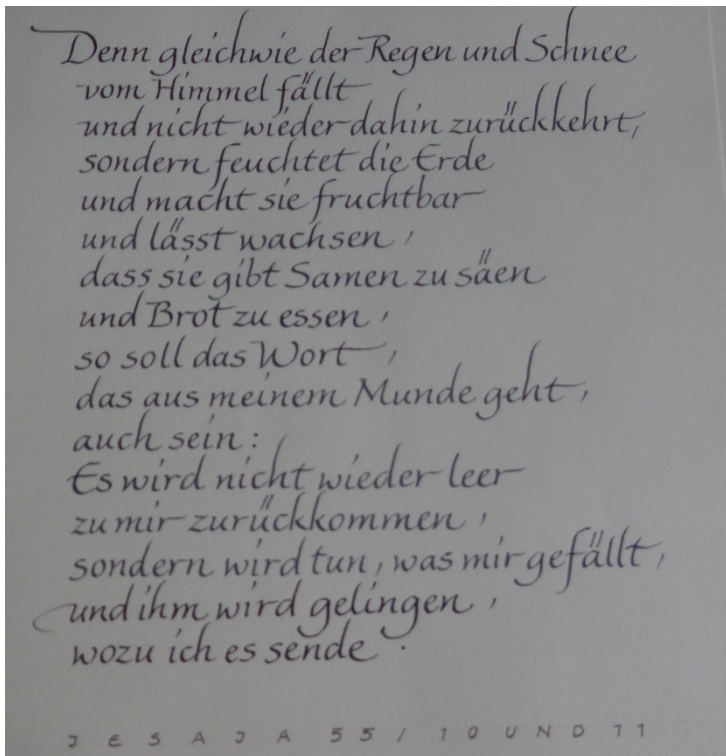 Denn gleichwie der Regen und Schnee
vom Himmel fällt
und nicht wieder dahin zurückkehrt,
sondern feuchtet die Erde
und macht sie fruchtbar
und lässt wachsen,
dass sie gibt Samen zu säen
und Brot zu essen,
so soll das Wort,
das aus meinem Munde geht,
auch sein:
Es wird nicht wieder leer
zu mir zurückkommen,
sondern wird tun, was mir gefällt,
und ihm wird gelingen,
wozu ich es sende.
JESAJA 55/10 UND 11